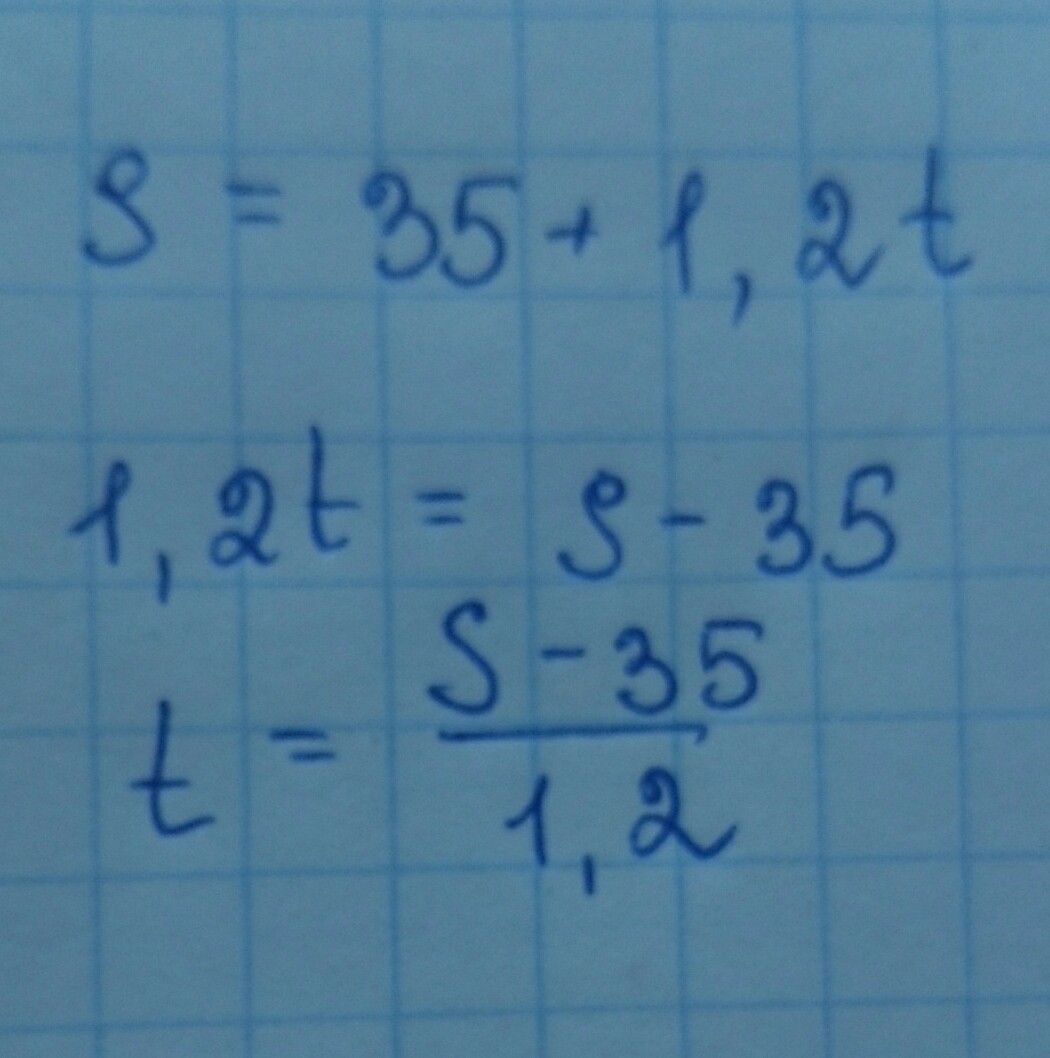 S = 35 + 1,2t
1,2t = S - 35
t = \frac{S - 35}{1,2}